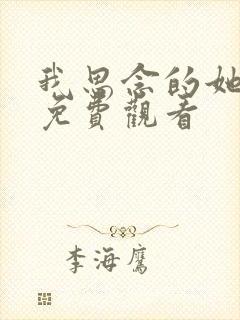 我思念的她
免費觀看
李海鷹